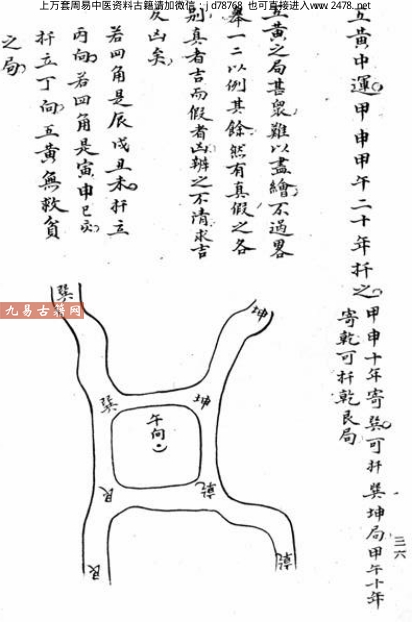 上万套周易中医资料古籍请加微信：jd78768 也可直接进入www.2478.net
五黃中運甲申甲午二十年扦之
甲申十年寄巽可扦巽坤局甲午十年
寄乾可扦乾艮局
三六
五黃之局甚眾難以盡繪不過畧
舉一二以例其餘然有真假之各
別真者吉而假者凶辨之不清求吉
反凶矣
若四角是辰戌丑未扦立
丙向若四角是寅申巳亥
扦立丁向五黃無救貧
之局
巽
坤
巽
坤
午向
艮
乾
艮
乾
九易古籍网